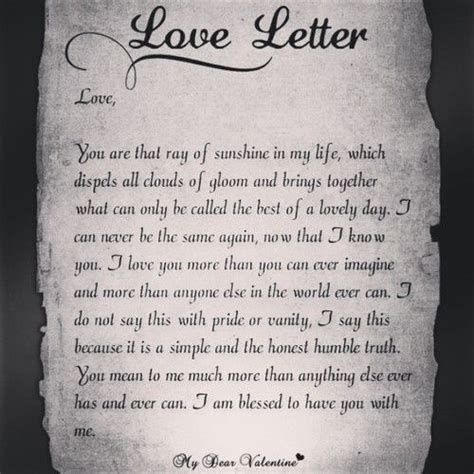 Love Letter
Love,
You are that ray of sunshine in my life, which
dispels all clouds of gloom and brings together
what can only be called the best of a lovely day. I
can never be the same again, now that I know
you. I love you more than you can ever imagine
and more than anyone else in the world ever can. I
do not say this with pride or vanity, I say this
because it is a simple and the honest humble truth.
You mean to me much more than anything else ever
has and ever can. I am blessed to have you with
me.
My Dear Valentine